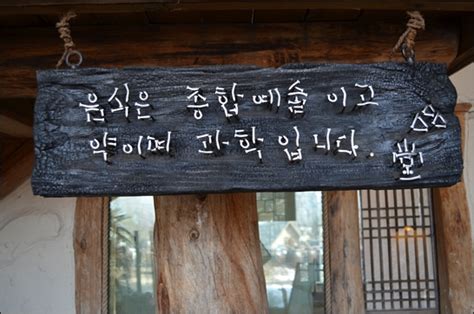 음식은 종합예술이고
약이며 과학입니다.